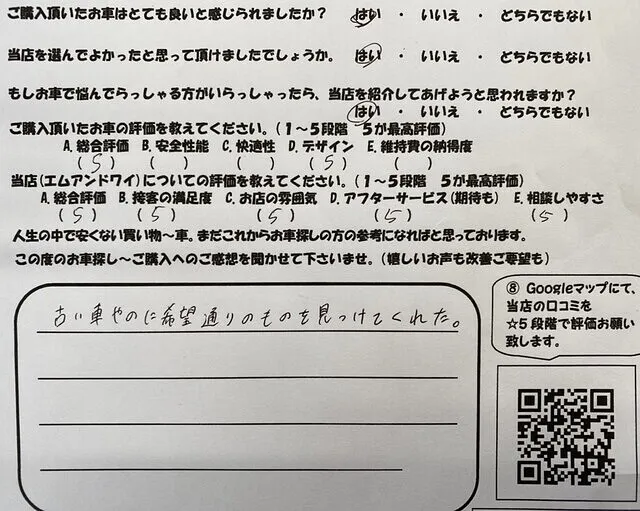 ご購入頂いたお車はとても良いと感じられましたか？ はい ・ いいえ ・ どちらでもない
当店を選んでよかったと思って頂けましたでしょうか。 はい ・ いいえ ・ どちらでもない
もしお車で悩んでらっしゃる方がいらっしゃったら、当店を紹介してあげようと思われますか？
はい ・ いいえ ・ どちらでもない
ご購入頂いたお車の評価を教えてください。（１～５段階　５が最高評価）
A. 総合評価 B. 安全性能 C. 快適性 D. デザイン E. 維持費の納得度
( 5 ) ( ) ( ) ( 5 ) ( )
当店(エムアンドワイ)についての評価を教えてください。（１～５段階　５が最高評価）
A. 総合評価 B. 接客の満足度 C. お店の雰囲気 D. アフターサービス(期待も) E. 相談しやすさ
( 5 ) ( 5 ) ( 5 ) ( 5 ) ( 5 )
人生の中で安くない買い物～車。まだこれからお車探しの方の参考になればと思っております。
この度のお車探し～ご購入へのご感想を聞かせて下さいませ。（嬉しいお声も改善ご要望も）
古い車やのに希望通りのものを見つけてくれた。
⑧ Googleマップにて、
当店の口コミを
☆５段階で評価お願い
致します。